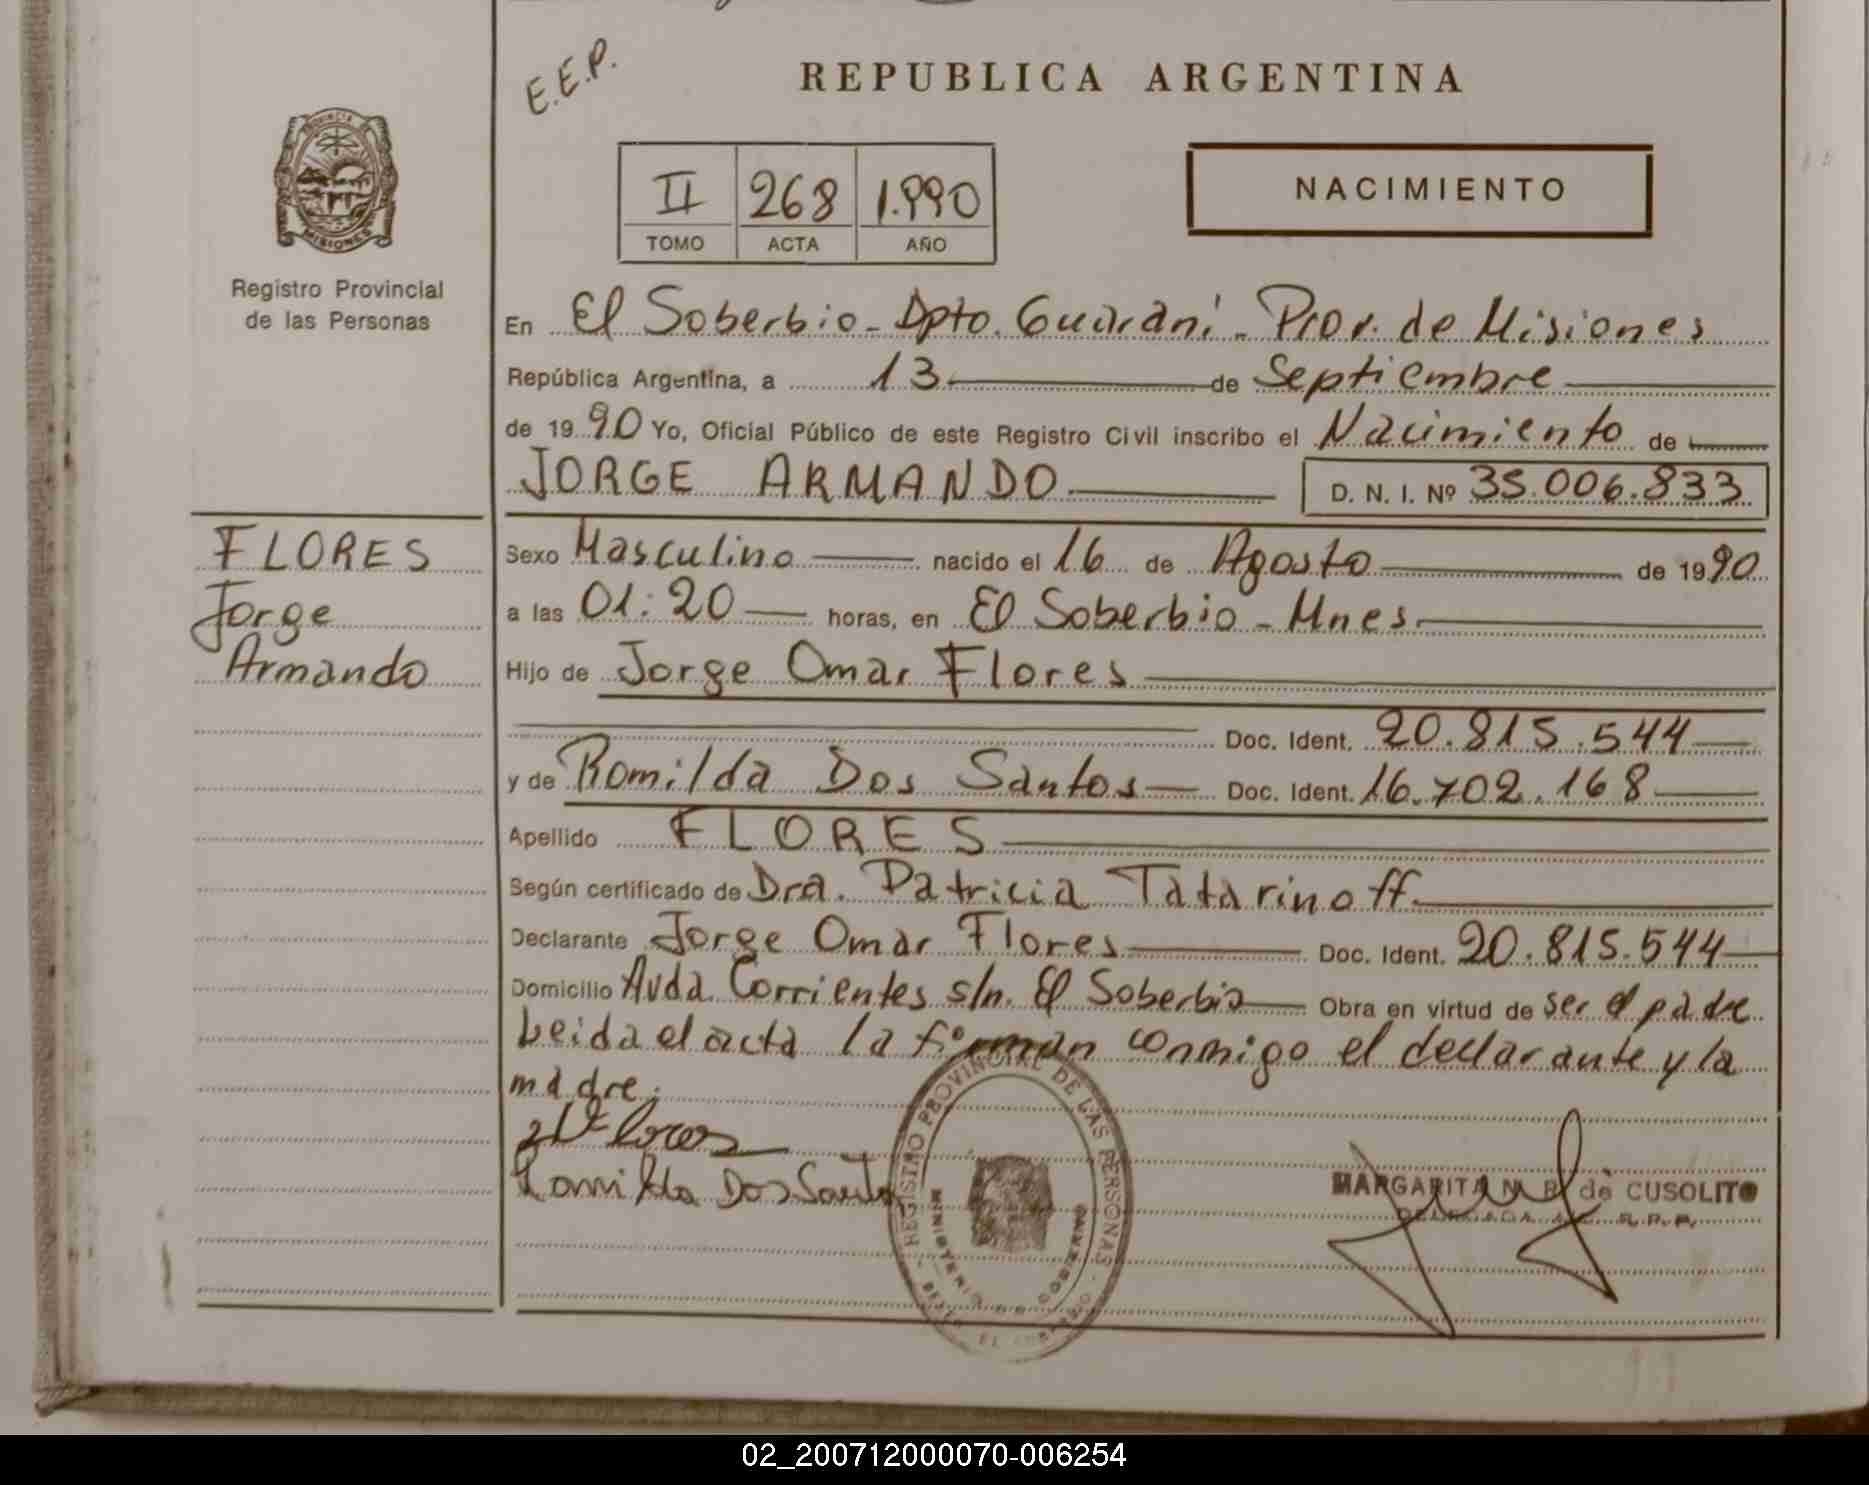 E.E.P.
REPUBLICA ARGENTINA
II 268 1.990
TOMO ACTA AÑO
NACIMIENTO
PROVINCIA
MISIONES
Registro Provincial
de las Personas
En El Soberbio - Dpto. Guaraní - Prov. de Misiones
República Argentina, a 13 de Septiembre
de 1990 Yo, Oficial Público de este Registro Civil inscribo el Nacimiento de
JORGE ARMANDO D. N. I. Nº 35.006.833
FLORES
Jorge
Armando
Sexo Masculino nacido el 16 de Agosto de 1990
a las 01:20 horas, en El Soberbio - Mnes.
Hijo de Jorge Omar Flores
Doc. Ident. 20.815.544
y de Romilda Dos Santos Doc. Ident. 16.702.168
Apellido FLORES
Según certificado de Dra. Patricia Tatarinoff.
Declarante Jorge Omar Flores Doc. Ident. 20.815.544
Domicilio Avda. Corrientes s/n. El Soberbio Obra en virtud de ser el padre
Leida el acta la firman conmigo el declarante y la
madre.
Flores
Romilda Dos Santos
REGISTRO PROVINCIAL DE LAS PERSONAS
MINISTERIO DE GOBIERNO
MARGARITA de CUSOLITO
DELEGADA R.P.P.
02_200712000070-006254